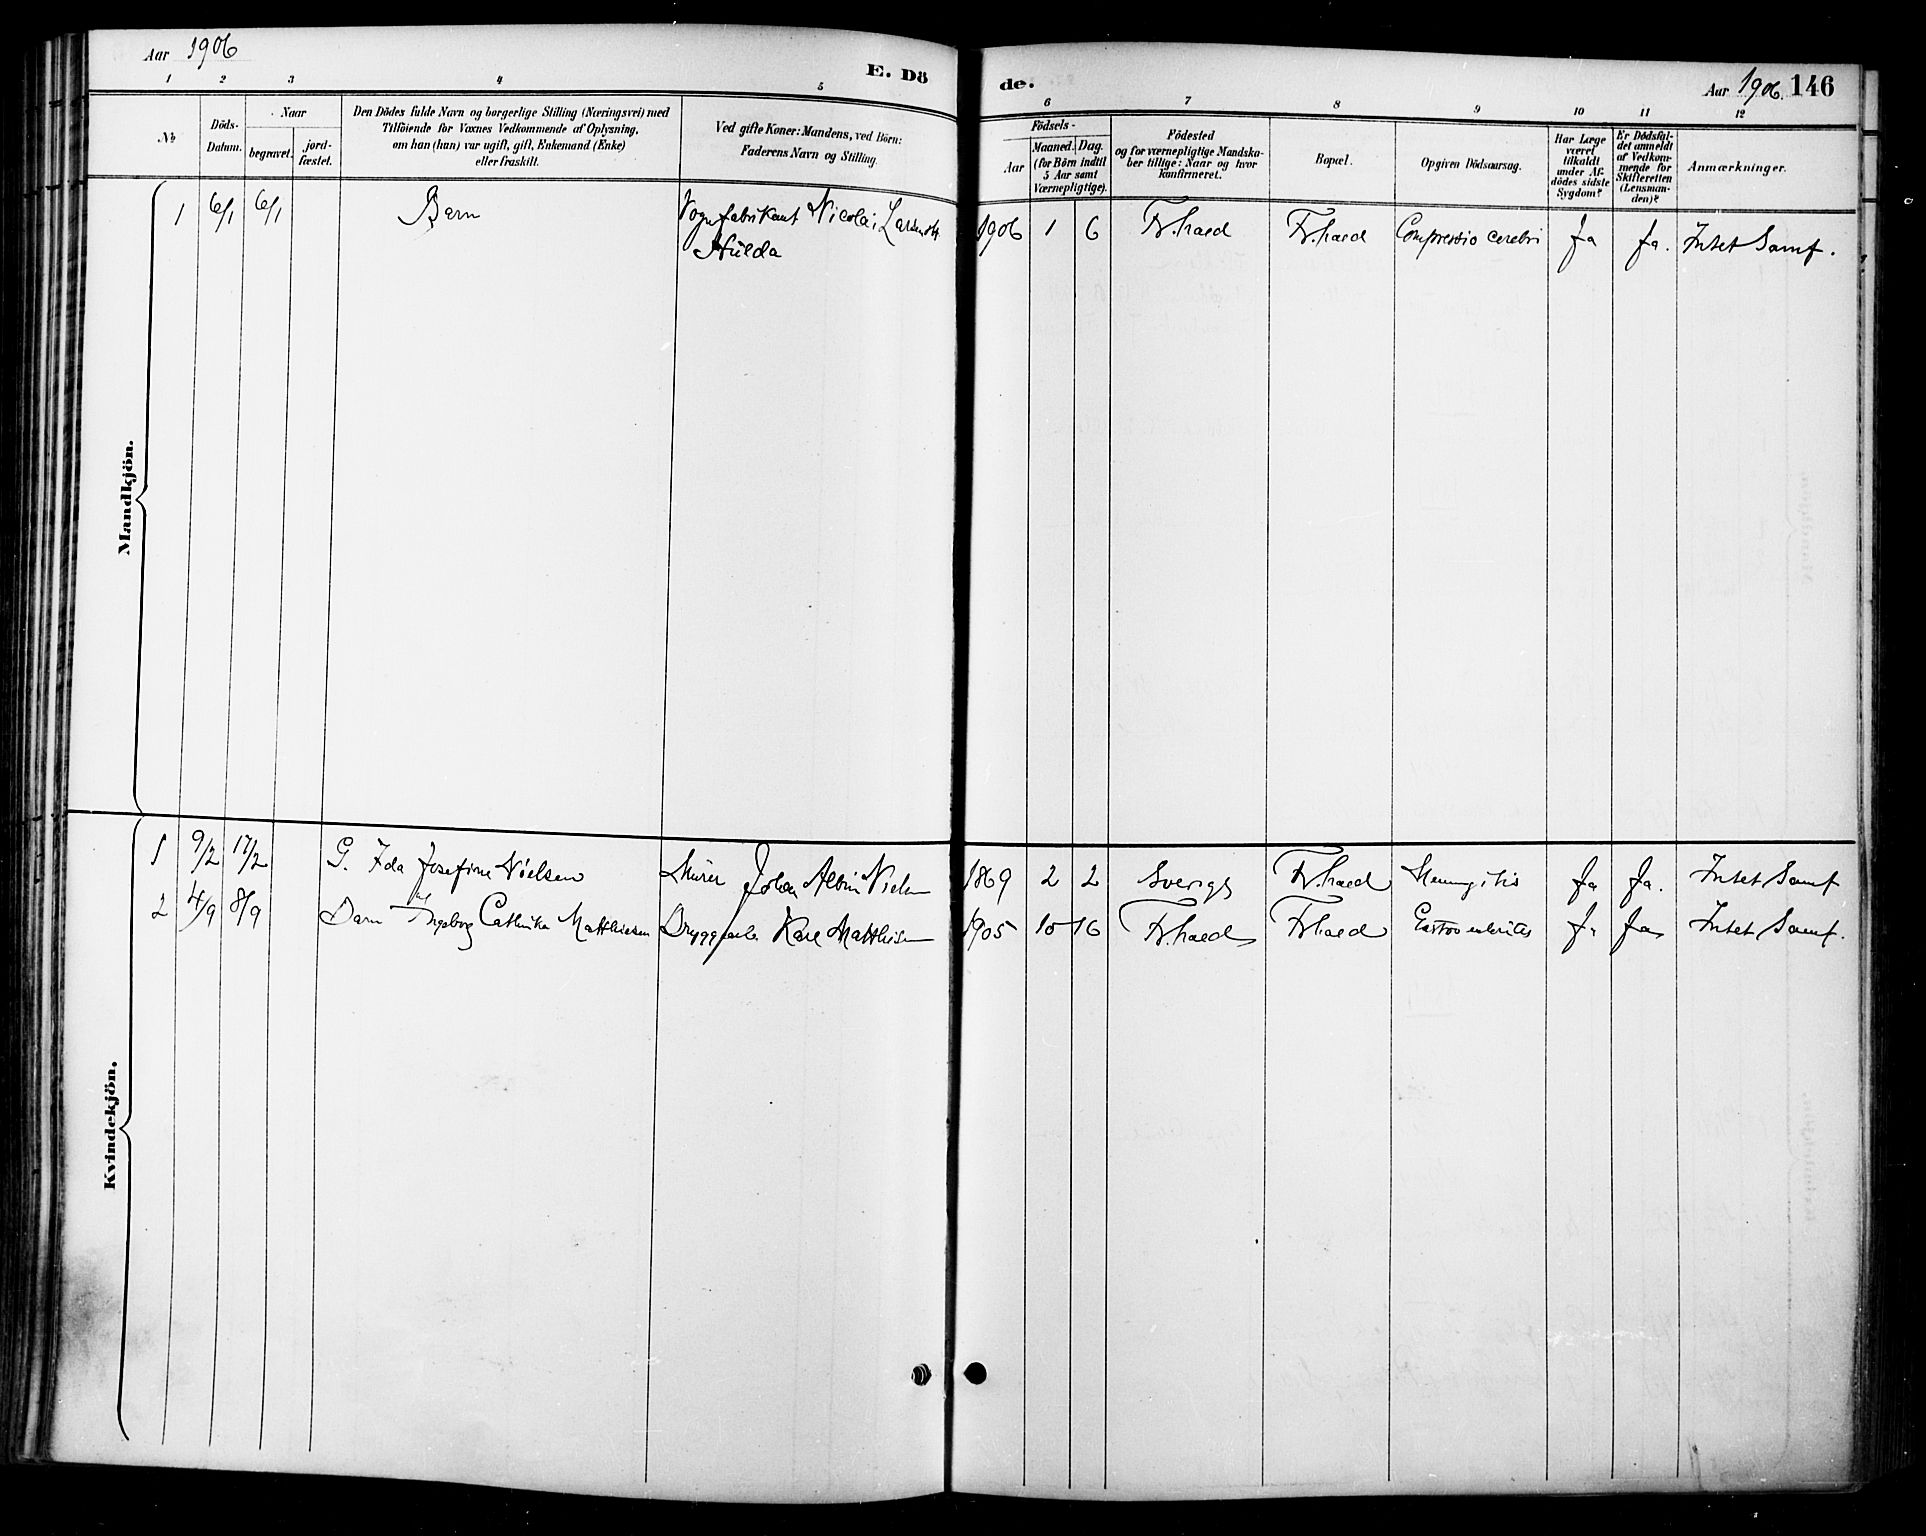 Aar 1906
E. Dö
de.
Aar 1906. 146
1 2 3 4 5 6 7 8 9 10 11 12
No
Döds-
Datum.
Naar
begravet.
jord-
fæstet.
Den Dödes fulde Navn og borgerlige Stilling (Næringsvei) med
Tilföiende for Voxnes Vedkommende af Oplysning,
om han (hun) var ugift, gift, Enkemand (Enke)
eller fraskilt.
Ved gifte Koner: Mandens, ved Börn:
Faderens Navn og Stilling.
Födsels-
Aar
Maaned. Dag.
(for Börn indtil
5 Aar samt
Værnepligtige).
Födested
og for værnepligtige Mandska-
ber tillige: Naar og hvor
konfirmeret.
Bopæl.
Opgiven Dödsaarsag.
Har Læge
været
tilkaldt
under Af-
dödes sidste
Sygdom?
Er Dödsfal-
det anmeldt
af Vedkom-
mende for
Skifteretten
(Lensman-
den)?
Anmærkninger.
Mandkjön.
1 6/1 6/1 Barn Vognfabrikant Nicolai Larsen og
Hulda
1906 1 6 Fr.hald Fr.hald Compressio cerebri Ja Ja. Intet Samf.
Kvindekjön.
1 9/2 17/2 G. Ida Josefine Nielsen Murer Johan Albin Nielsen 1869 2 2 Sverige Fr.hald Meningitis Ja Ja. Intet Samf
2 4/9 8/9 Barn Ingeborg Cathrika Matthiesen Bryggearb. Karl Matthisen 1905 10 16 Fr.hald Fr.hald Gastroenterites Ja Ja Intet Samf.